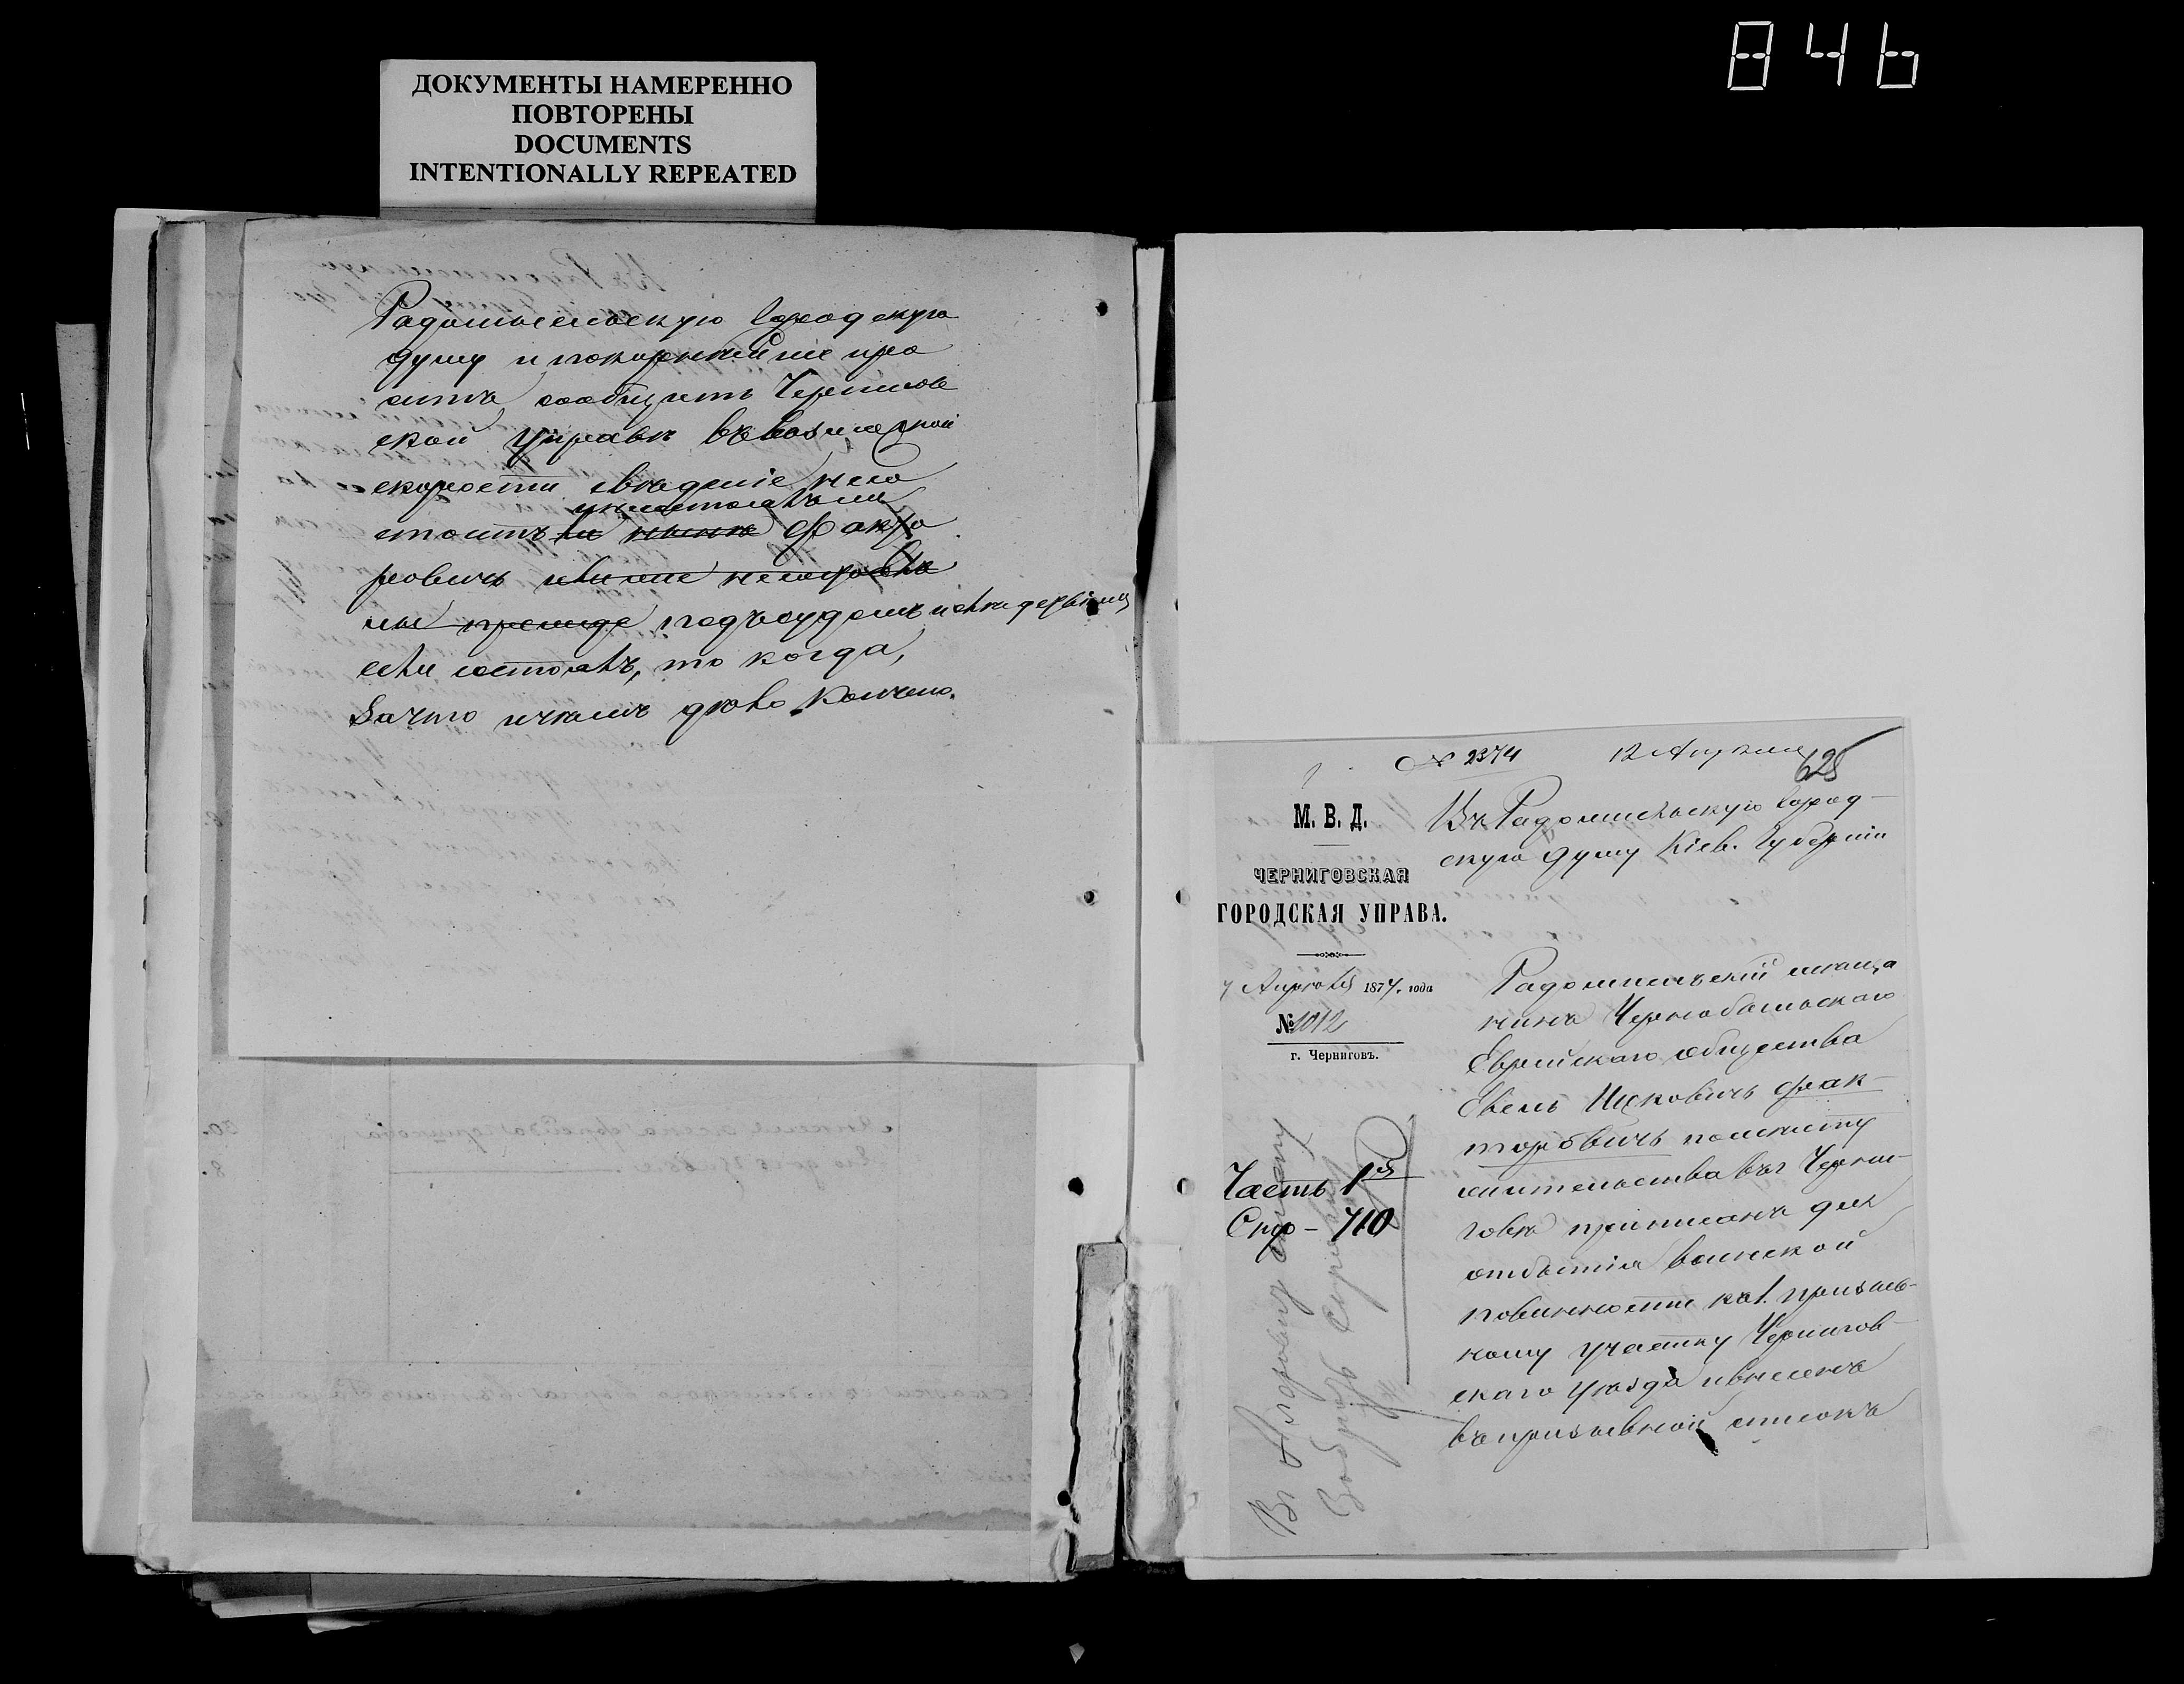 846
ДОКУМЕНТЫ НАМЕРЕННО
ПОВТОРЕНЫ
DOCUMENTS
INTENTIONALLY REPEATED
Радомысльскую Городскую
думу и покорнѣйше про
ситъ сообщить Чернигов
ской Управѣ въ возможной
скорости свѣденіе не со
и не стоялъ ли
стоитъ ли нынѣ Факто
ровичъ
прежде подъ судомъ и слѣдствіемъ
если состоялъ, то когда,
за что и чѣмъ дѣло кончено.
№ 2374 12 Апрѣля
625
М. В. Д.
ЧЕРНИГОВСКАЯ
ГОРОДСКАЯ УПРАВА.
7 Апрѣля 1877. года
№ 1012
г. Черниговъ.
Въ Радомысльскую Город-
скую Думу Кіев. Губерніи
Радомысльскій мѣща
нинъ Чернобыльскаго
Еврейскаго общества
Евель Ицковичъ Фак-
торовичъ по мѣсту
жительства въ г. Черни-
говѣ приписанъ для
отбытія воинской
повинности къ 1. призыв-
ному участку Чернигов-
скаго уѣзда и внесенъ
въ призывной списокъ
Часть 1я
Стр - 710